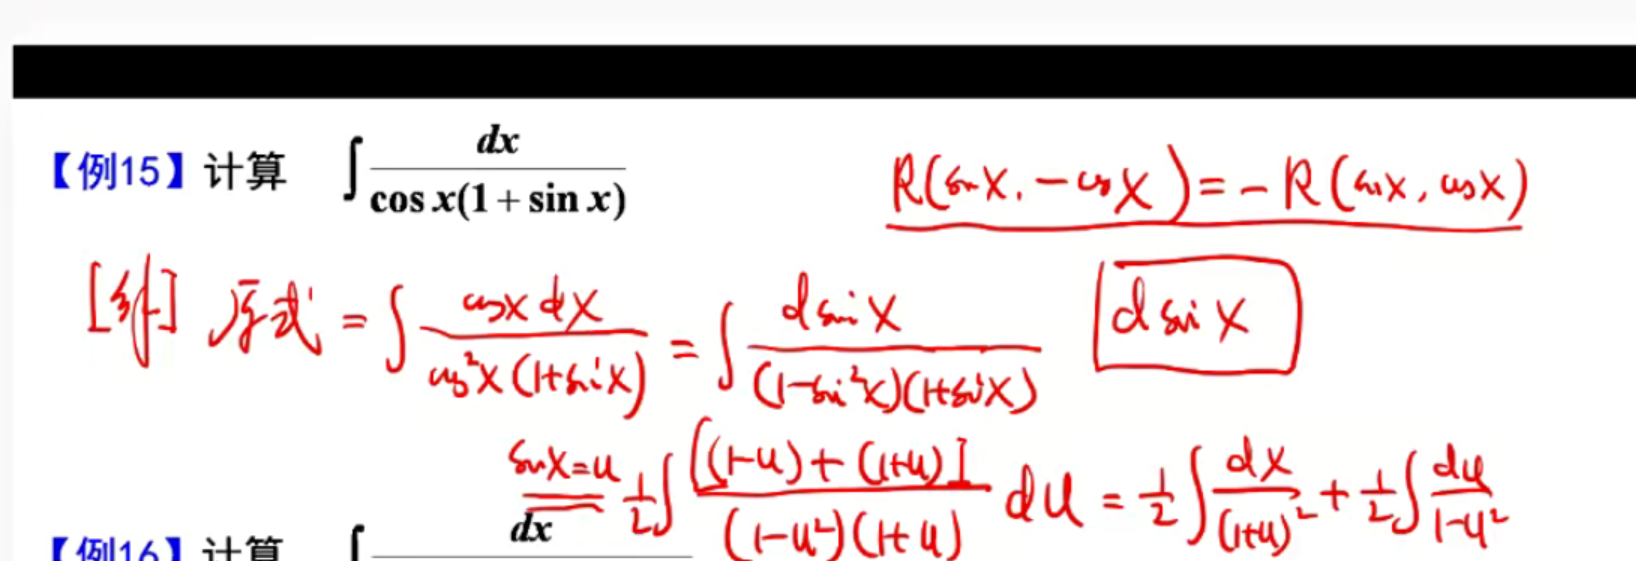 【例15】计算 ∫ dx / (cos x(1 + sin x))
R(sin X, -cos X) = -R(sin X, cos X)
[解] 原式 = ∫ cos X dX / (cos²X (1+sin X)) = ∫ d sin X / ((1-sin²X)(1+sin X))
d sin X
sin X = u 1/2 ∫ [(1-u) + (1+u)] / ((1-u²)(1+u)) du = 1/2 ∫ dX / (1+u)² + 1/2 ∫ du / (1-u²)
【例16】计算 ∫ dx